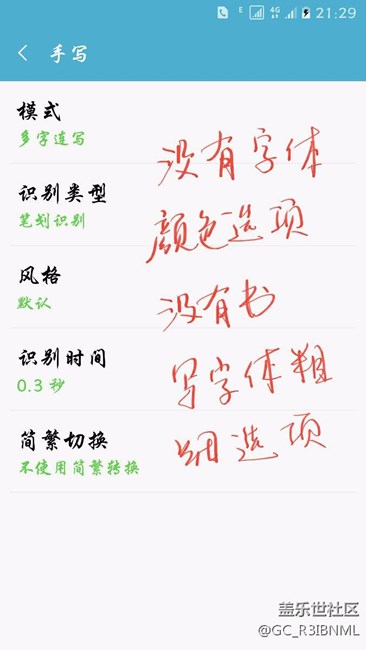 E 4G 21:29
手写
模式
多字连写
没有字体
识别类型
笔划识别
颜色选项
风格
默认
没有书
识别时间
0.3 秒
写字体粗
简繁切换
不使用简繁转换
细选项
盖乐世社区
@GC_R3IBNML